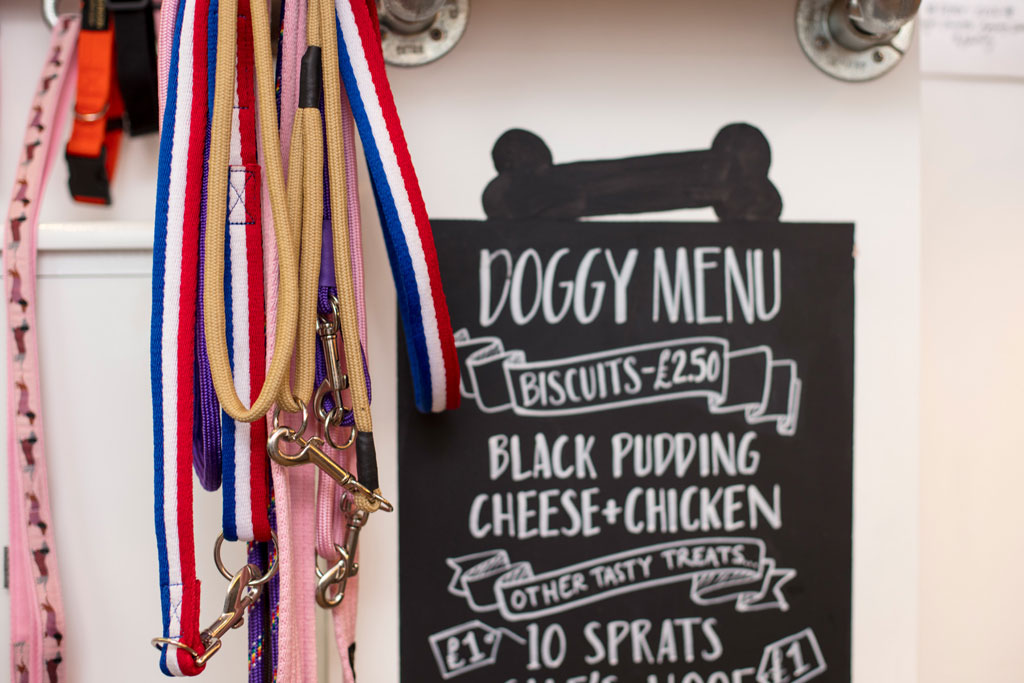 DOGGY MENU
BISCUITS-£2.50
BLACK PUDDING
CHEESE+CHICKEN
OTHER TASTY TREATS...
£1 10 SPRATS
£1